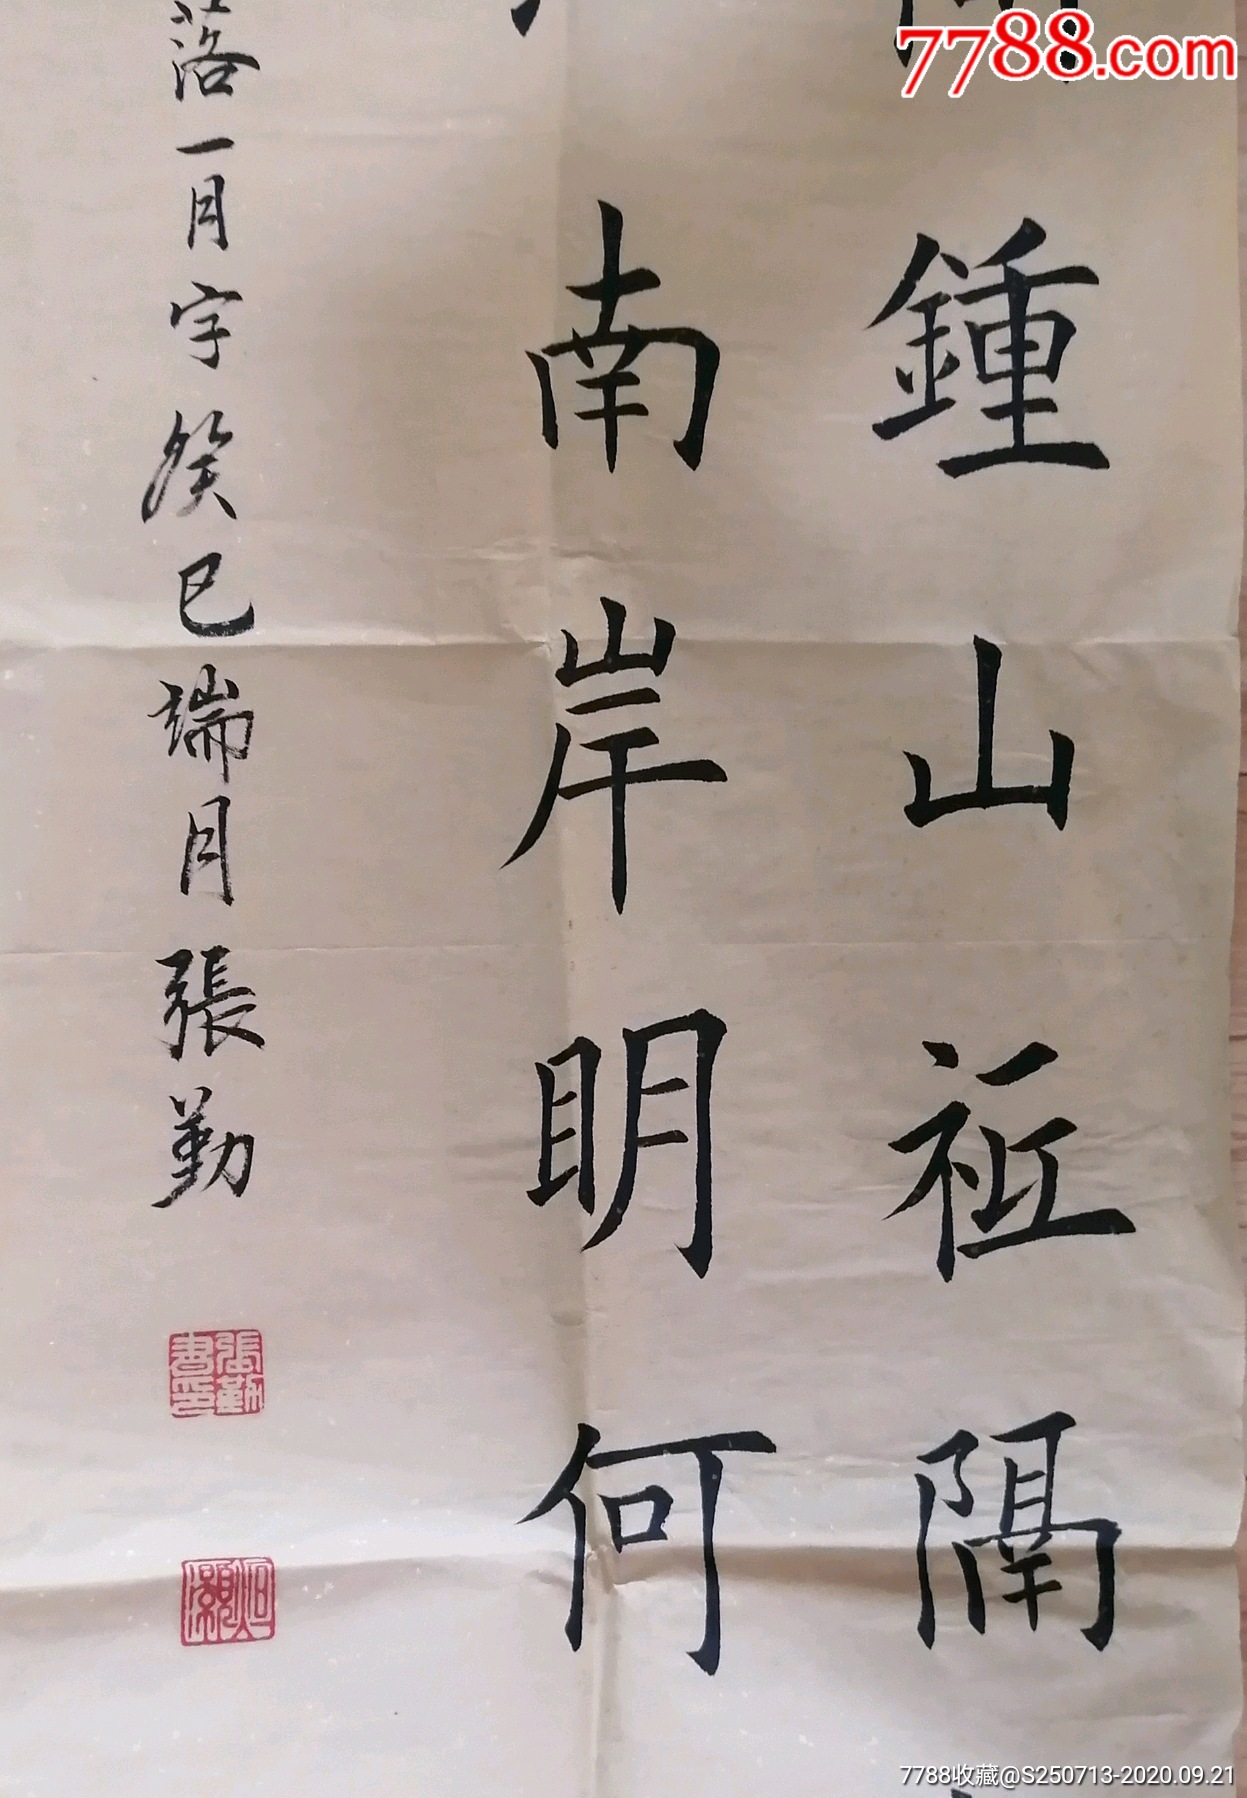 7788.com
鍾山祗隔
南岸明何
落一月字癸巳端月張勤
張勤書印
7788收藏@S250713-2020.09.21